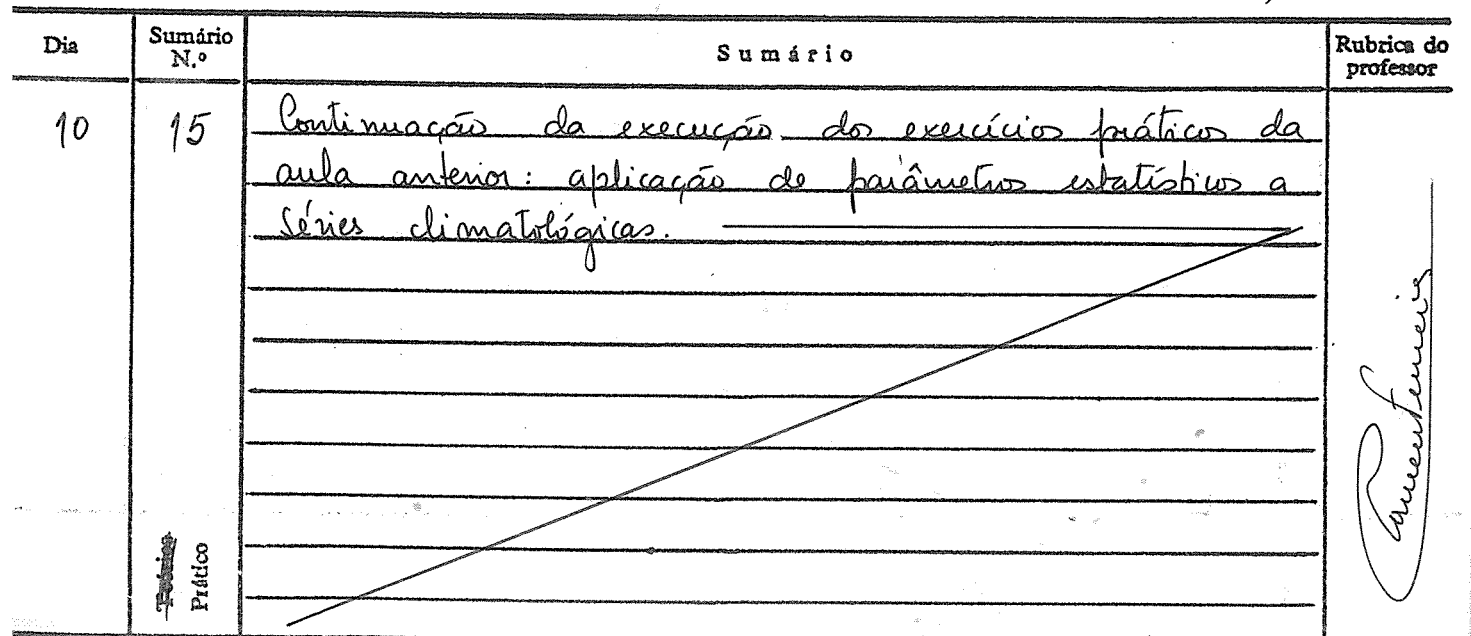 Dia
Sumário N.º
Sumário
Rubrica do professor
10
15
Continuação da execução dos exercícios práticos da
aula anterior: aplicação de parâmetros estatísticos a
séries climatológicas.
Prático